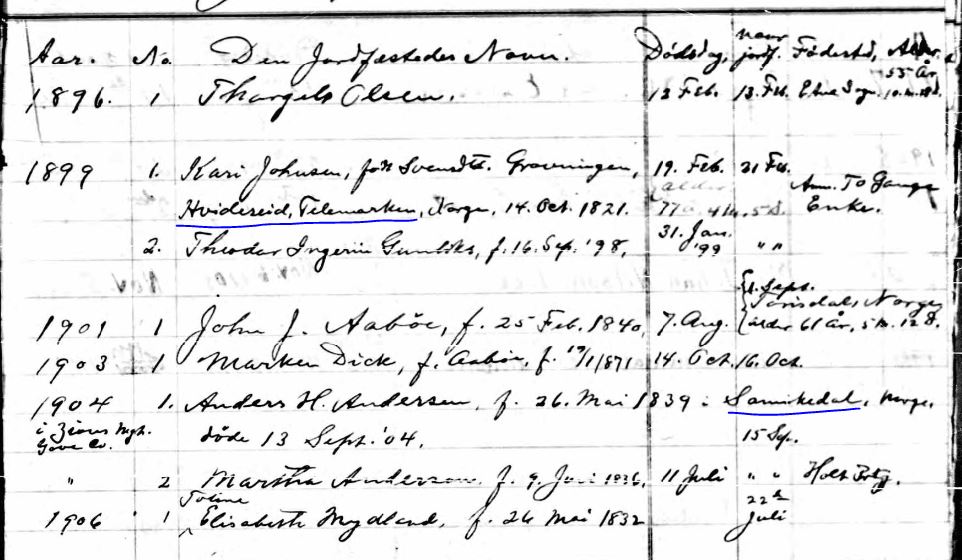 Aar. No. Den Jordfæstedes Navn. Dødsdag, naar jordf. Fødested, Alder.
1896. 1 Thorgels Olsen. 13 Feb. 18. Feb. 55 År 10. m. 18 d.
1899 1. Kari Johnsen, født Svendtt. 19. Feb. 21 Feb.
Hvideseid, Telemarken, Norge, 14. Oct. 1821. alder 77 a. 4 m. 5 d. Enke.
2. Theodor f. 16. Sep. '98, 31. Jan. '99 " "
1. Sept.
1901 1 John J. Aabøe, f. 25 Feb. 1840, 7. Aug. Norge, alder 61 år, 5 m. 12 d.
1903 1. Marken Dick, f. Aabøe, f. 19/1/1871 14. Oct. 16. Oct.
1904 1. Anders H. Andersen, f. 26. Mai 1839 i Sannikedal, Norge.
i Zions Mgh. Gove Co. døde 13 Sept. '04. 15 Sep.
" 2 Martha Anderson, f. 9. 1836, 11 Juli " " Holt
1906 1 Toline Elisabeth Mydland, f. 26 Mai 1832 22de Juli